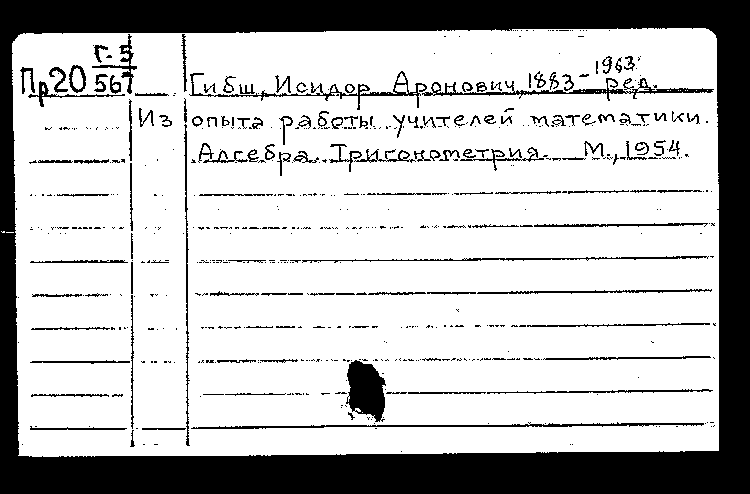 Г. 5
Пр20 567 Гибш, Исидор Аронович, 1883-1963 ред.
Из опыта работы учителей математики.
Алгебра. Тригонометрия. М., 1954.